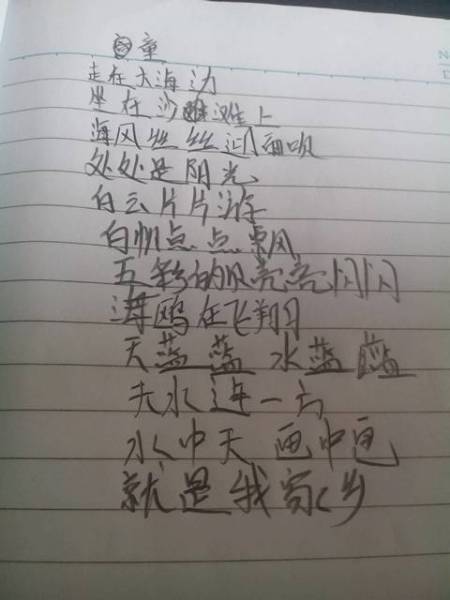 童
走在大海边
坐在沙滩上
海风丝丝迎面吹
处处是阳光
白云片片游
白帆点点飘
五彩的贝壳亮闪闪
海鸥在飞翔
天蓝蓝 水蓝蓝
天水连一方
水中天 画中画
就是我家乡